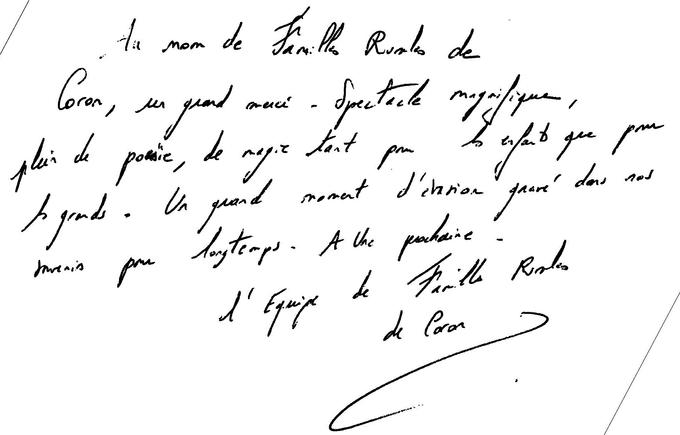 Au nom de Familles Rurales de
Coron, un grand merci - Spectacle magnifique,
plein de poésie, de magie tant pour les enfants que pour
les grands. Un grand moment d'évasion gravé dans nos
souvenirs pour longtemps. A Une prochaine -
l'Equipe de Familles Rurales
de Coron